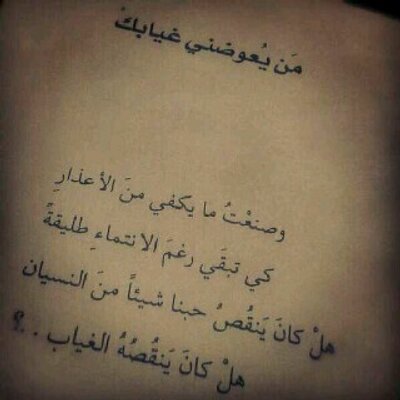 مَن يُعوضني غيابكْ
وصنعْتُ ما يكفي منَ الأعذارِ
كي تبقَي رغمَ الانتماءِ طليقةً
هلْ كانَ يَنقُصُ حبنا شيئاً منَ النسيان
هلْ كانَ يَنقُصُهُ الغياب . . ؟